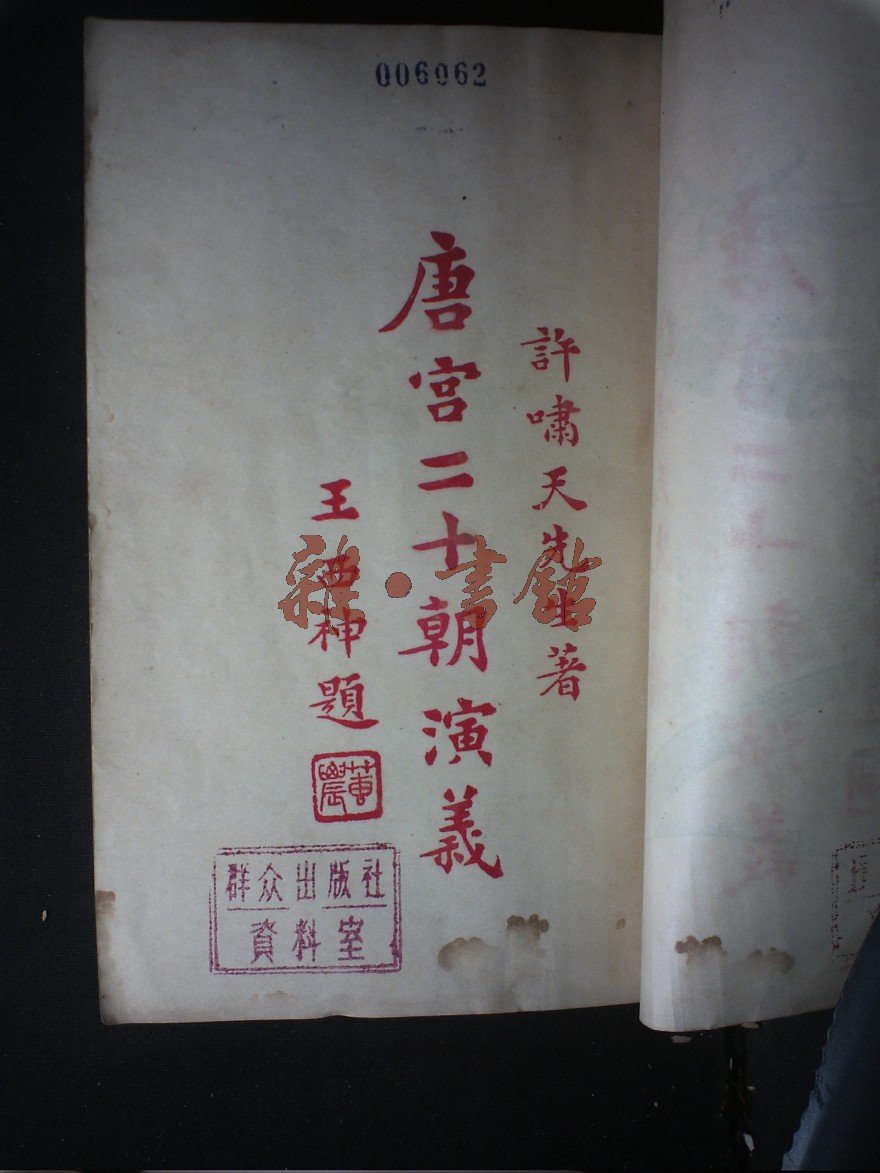 006062
許嘯天先生著
唐宮二十朝演義
王西神題
蓴農
群众出版社
資料室
雜·書館